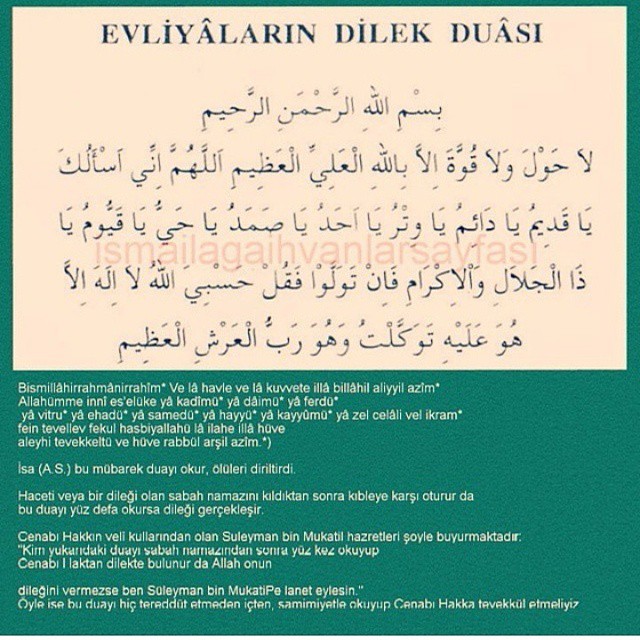 EVLİYÂLARIN DİLEK DUÂSI
بِسْمِ اللهِ الرَّحْمَنِ الرَّحِيمِ
لَا حَوْلَ وَلَا قُوَّةَ اِلَّا بِاللهِ الْعَلِيِّ الْعَظِيمِ اَللَّهُمَّ اِنِّي اَسْأَلُكَ
يَا قَدِيمُ يَا دَائِمُ يَا وِتْرُ يَا اَحَدُ يَا صَمَدُ يَا حَيُّ يَا قَيُّومُ يَا
ismailagaihvanlarsayfasi
ذَا الْجَلَالِ وَالْاِكْرَامِ فَاِنْ تَوَلَّوْا فَقُلْ حَسْبِيَ اللهُ لَا اِلَهَ اِلَّا
هُوَ عَلَيْهِ تَوَكَّلْتُ وَهُوَ رَبُّ الْعَرْشِ الْعَظِيمِ
Bismillâhirrahmânirrahîm* Ve lâ havle ve lâ kuvvete illâ billâhil aliyyil azîm*
Allahümme innî es'elüke yâ kadîmü* yâ dâimü* yâ ferdü*
yâ vitru* yâ ehadü* yâ samedü* yâ hayyü* yâ kayyûmü* yâ zel celâli vel ikram*
fein tevellev fekul hasbiyallahü lâ ilahe illâ hüve
aleyhi tevekkeltü ve hüve rabbül arşil azîm.*)
İsa (A.S.) bu mübarek duayı okur, ölüleri diriltirdi.
Haceti veya bir dileği olan sabah namazını kıldıktan sonra kıbleye karşı oturur da
bu duayı yüz defa okursa dileği gerçekleşir.
Cenabı Hakkın velî kullarından olan Suleyman bin Mukatil hazretleri şoyle buyurmaktadır:
"Kim yukarıdaki duayı sabah namazından sonra yüz kez okuyup
Cenabı Haktan dilekte bulunur da Allah onun
dileğini vermezse ben Süleyman bin MukatiPe lanet eylesin."
Öyle ise bu duayı hiç tereddüt etmeden içten, samimiyetle okuyup Cenabı Hakka tevekkül etmeliyiz